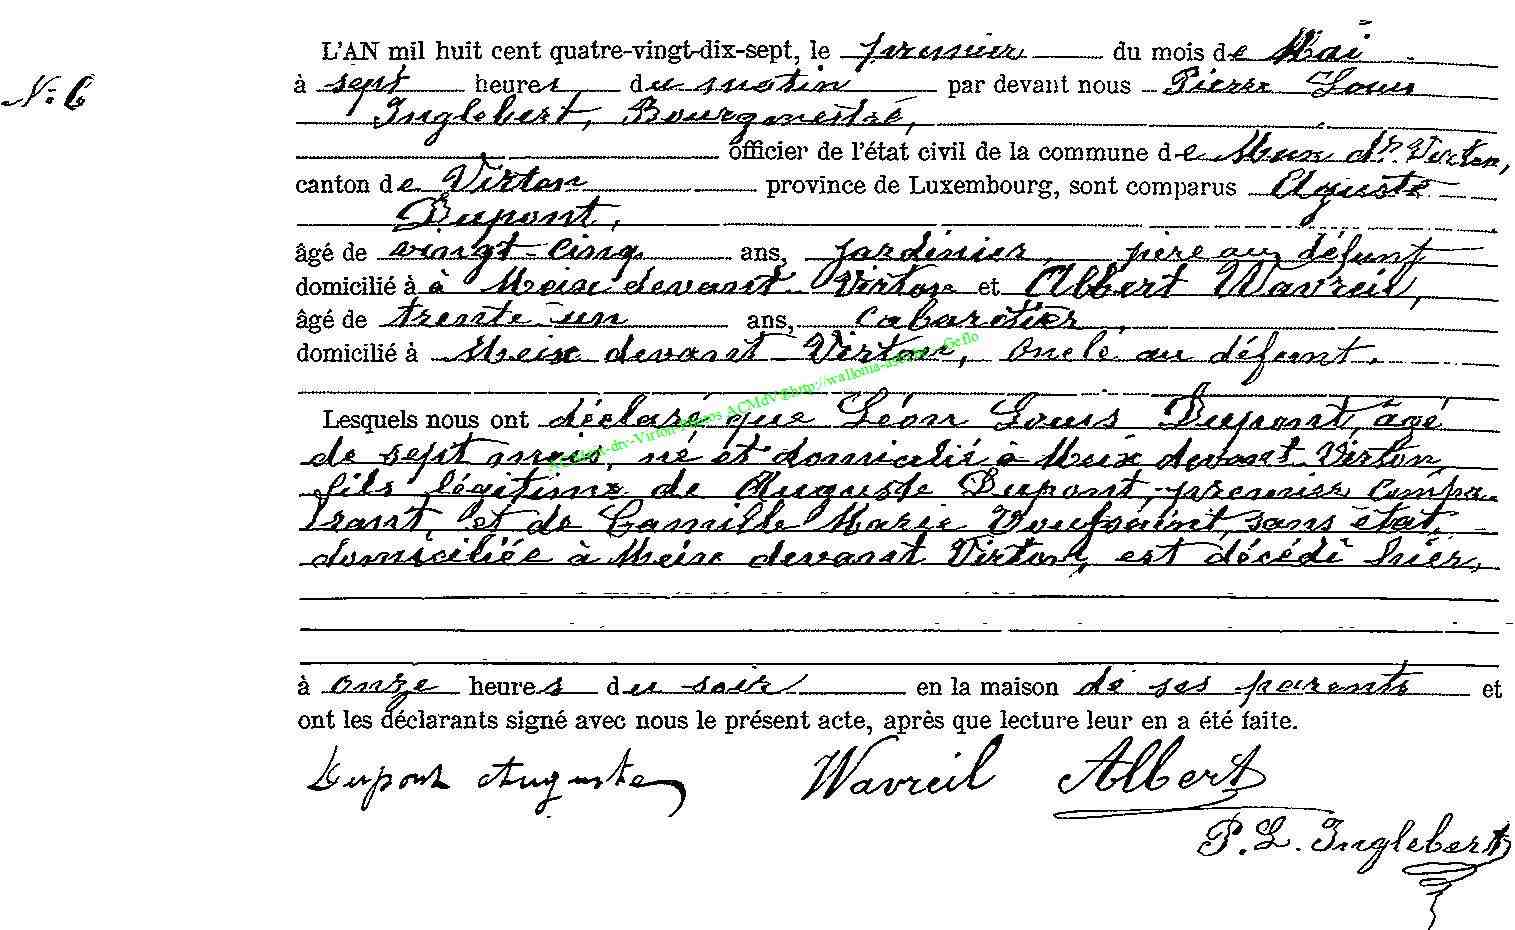 L'AN mil huit cent quatre-vingt-dix-sept, le premier du mois de Mai
N° 6
à sept heures du matin par devant nous Pierre Louis
Inglebert, Bourgmestre,
officier de l'état civil de la commune de Meix dt Virton,
canton de Virton province de Luxembourg, sont comparus Aguste
Dupont,
âgé de vingt-cinq ans, jardinier, père au défunt
domicilié à à Meix devant Virton et Albert Wavreil,
âgé de trente-un ans, cabaretier,
domicilié à Meix devant Virton, oncle au défunt.
Lesquels nous ont déclaré que Léon Louis Dupont, âgé
de sept mois, né et domicilié à Meix devant Virton
fils légitime de Auguste Dupont, premier compa-
rant, et de Camille Marie sans état,
domiciliée à Meix devant Virton, est décédé hier,
à onze heures du soir en la maison de ses parents et
ont les déclarants signé avec nous le présent acte, après que lecture leur en a été faite.
Dupont Auguste Wavreil Albert
P. L. Inglebert